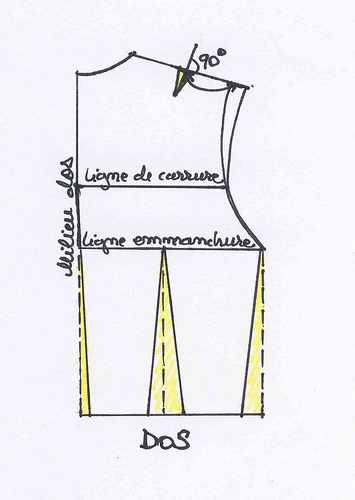 90°
Ligne de carrure
Milieu dos
Ligne emmanchure
DOS